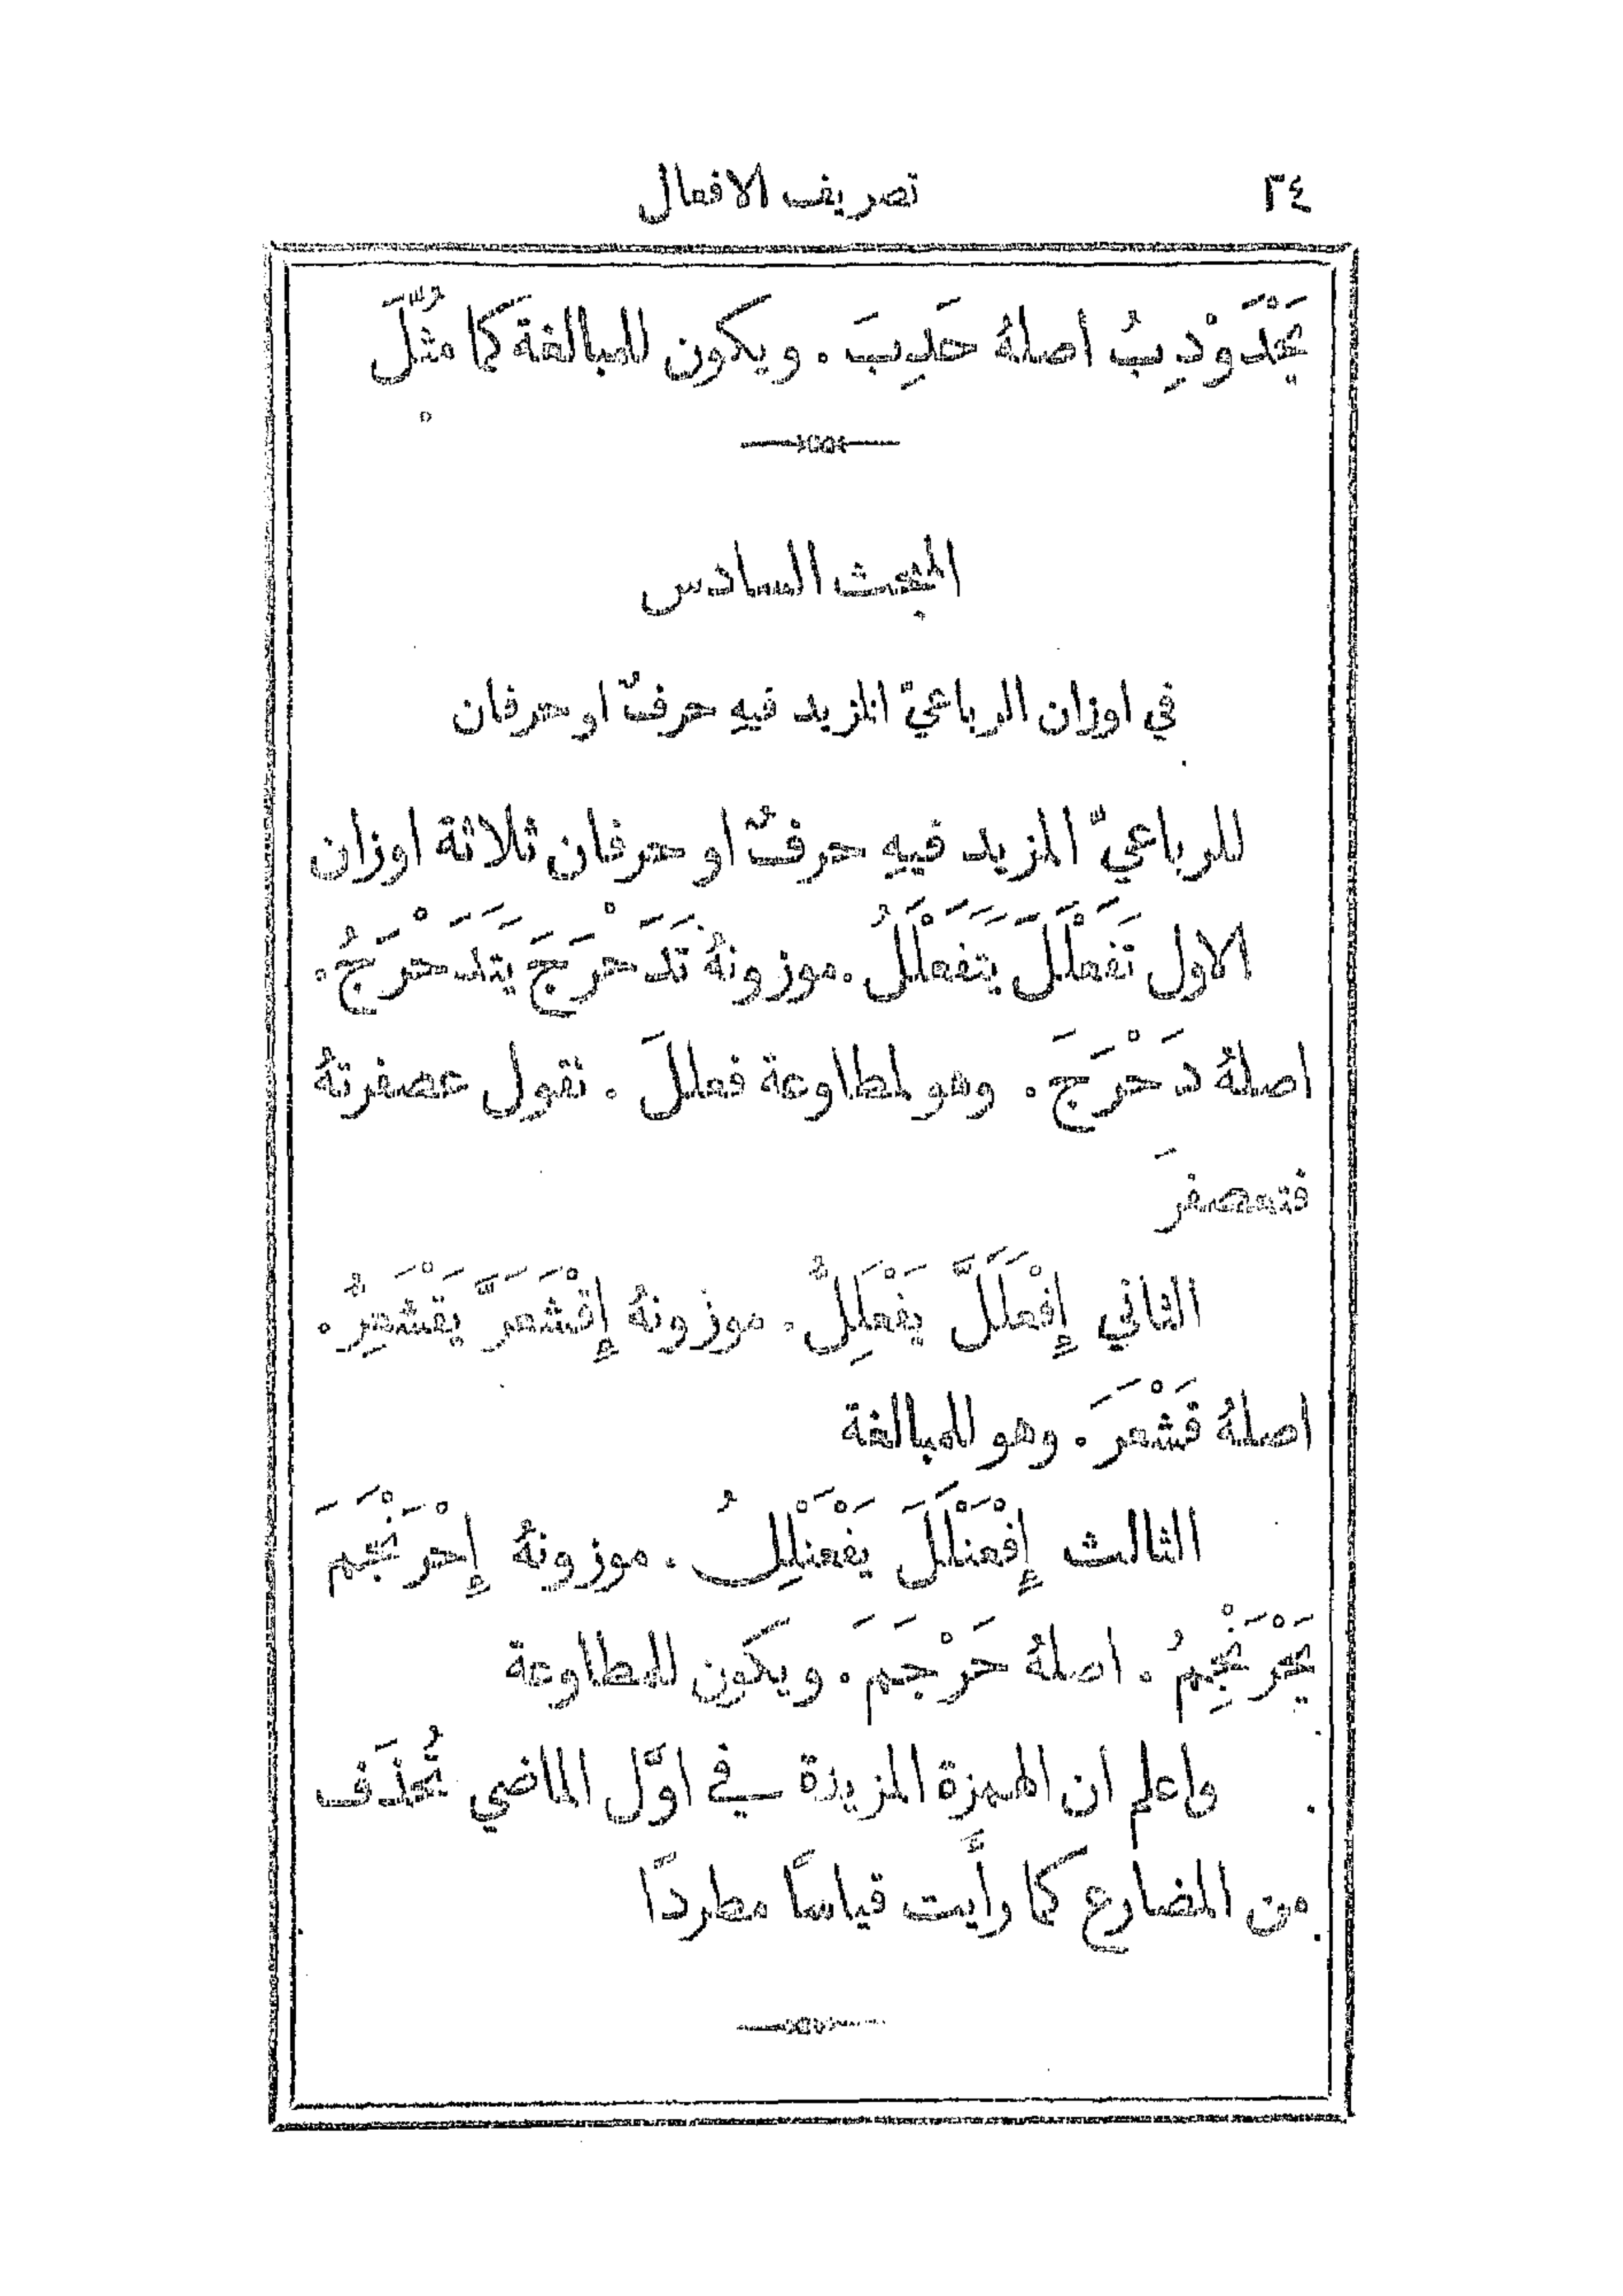 ٣٤
تصريف الافعال
يَحْدَوْدِبُ اصلهُ حَدِبَ . ويكون للمبالغة كما مُثِّلَ
المبحث السادس
في اوزان الرباعيّ المزيد فيهِ حرفٌ او حرفان
للرباعيّ المزيد فيهِ حرفٌ او حرفان ثلاثة اوزان
الاول تَفَعْلَلَ يَتَفَعْلَلُ . موزونهُ تَدَحْرَجَ يَتَدَحْرَجُ .
اصلهُ دَحْرَجَ . وهو لمطاوعة فعللَ . تقول عصفرتهُ
فتعصفرَ
الثاني إِفْعَلَلَّ يَفْعَلِلُّ . موزونهُ إِقْشَعَرَّ يَقْشَعِرُّ .
اصلهُ قَشْعَرَ . وهو للمبالغة
الثالث إِفْعَنْلَلَ يَفْعَنْلِلُ . موزونهُ إِحْرَنْجَمَ
يَحْرَنْجِمُ . اصلهُ حَرْجَمَ . ويكون للمطاوعة
واعلم ان الهمزة المزيدة في اوَّل الماضي تُحذَف
من المضارع كما رأَيت قياسًا مطردًا